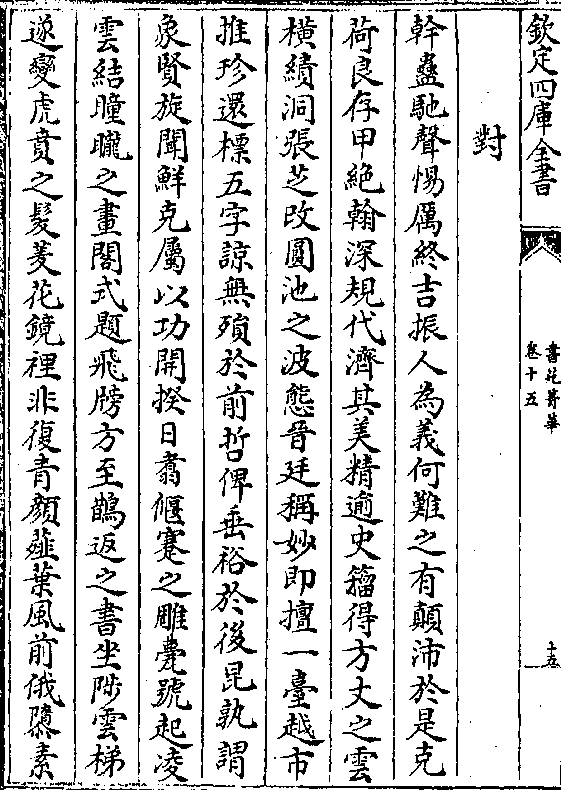 欽定四庫全書
書苑菁華
卷十五
十五
對
幹蠱馳聲惕厲終吉振人為義何難之有顛沛於是克
荷良存甲絶翰深規代濟其美精逾史籀得方丈之雲
橫績洞張芝改圓池之波態晉廷稱妙即擅一臺越市
推珍還標五字諒無殞於前哲俾垂裕於後昆孰謂
象賢旋聞鮮克屬以功開揆日翥偃蹇之雕甍號起凌
雲結曈曨之畫閣式題飛牓方至鵲返之書坐陟雲梯
遂變虎賁之髮菱花鏡裡非復青顔薤葉風前俄隳素